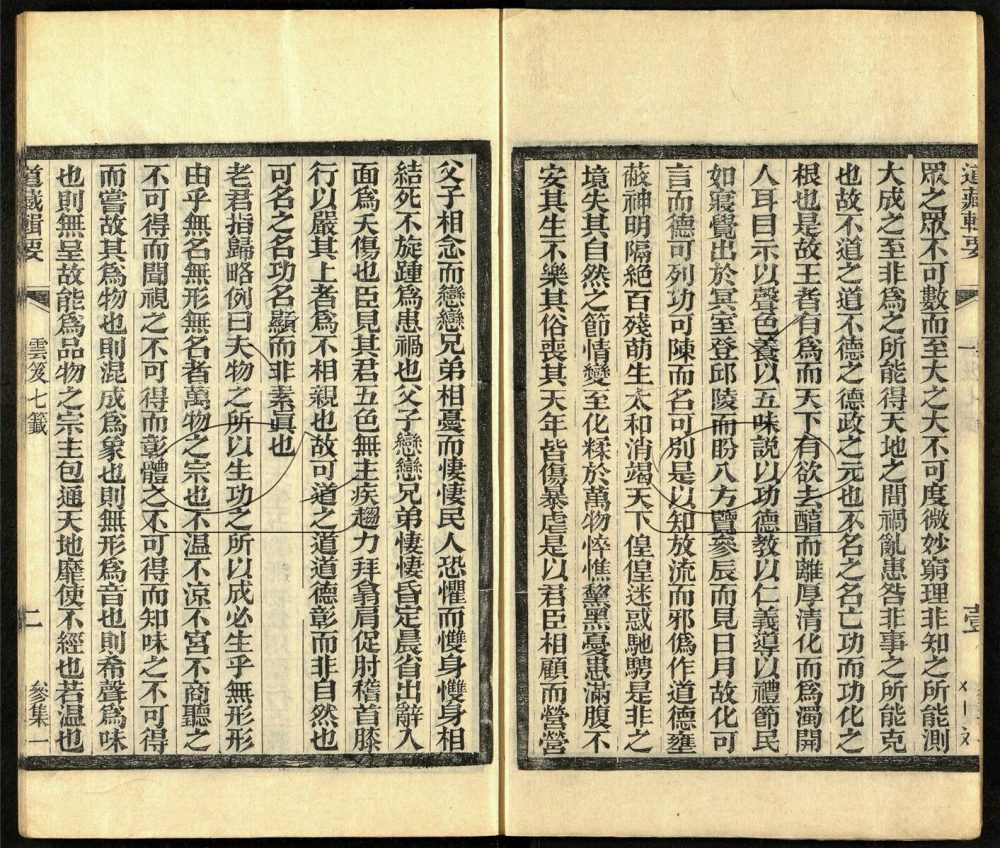 道藏輯要
一
壹
眾之眾不可數而至大之大不可度微妙窮理非知之所能測
大成之至非為之所能得天地之間禍亂患咎非事之所能克
也故不道之道不德之德政之元也不名之名亡功而功化之
根也是故王者有為而天下有欲去醇而離厚清化而為濁開
人耳目示以聲色養以五味說以功德教以仁義導以禮節民
如寢覺出於冥室登邱陵而盼八方覽參辰而見日月故化可
言而德可列功可陳而名可別是以知放流而邪偽作道德壅
蔽神明隔絕百殘萌生太和消竭天下偟偟迷惑馳騁是非之
境失其自然之節情變至化糅於萬物悴憔黧黑憂患滿腹不
安其生不樂其俗喪其天年皆傷暴虐是以君臣相顧而營營
父子相念而戀戀兄弟相憂而悽悽民人恐懼而慞身慞身相
結死不旋踵為患禍也父子戀戀兄弟悽悽昏定晨省出辭入
面為夭傷也臣見其君五色無主疾趨力拜翕肩促肘稽首膝
行以嚴其上者為不相親也故可道之道道德彰而非自然也
可名之名功名顯而非素真也
老君指歸略例曰夫物之所以生功之所以成必生乎無形形
由乎無名無形無名者萬物之宗也不温不涼不宮不商聽之
不可得而聞視之不可得而彰體之不可得而知味之不可得
而嘗故其為物也則混成為象也則無形為音也則希聲為味
也則無呈故能為品物之宗主包通天地靡使不經也若温也
道藏輯要
雲笈七籤
二
參集一